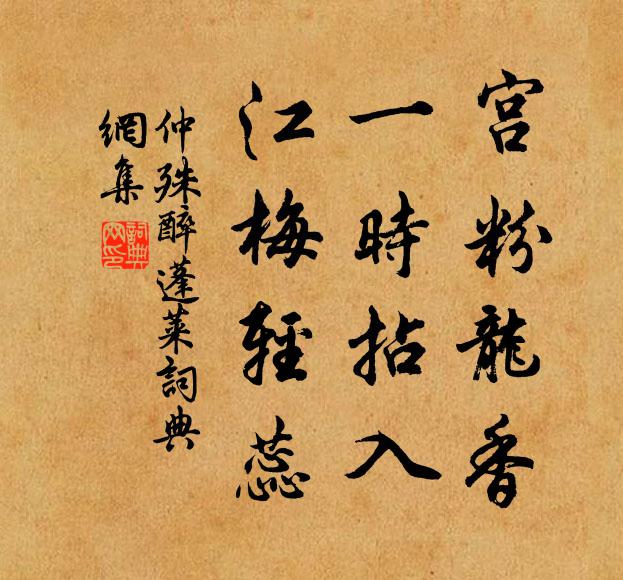 宫粉龍香
一時拈入
江梅輕蕊
仲殊醉蓬萊詞典
網集
詞典
网印